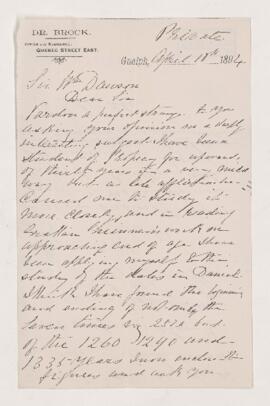 DR. BROCK.
OFFICE AND RESIDENCE:
QUEBEC STREET EAST.
Private
Guelph, April 18th 1894
Sir Wm Dawson
Dear Sir
Pardon a perfect stranger to you
asking your opinion on a deeply
interesting subject I have been a
student of Prophecy for upward
of thirty years in a very mild
way but of late affliction
caused me to study it
more closely, and in reading
Grattan Guinness work on
approaching end of age I have
been applying myself to the
study of the dates in Daniel
I think I have found the beginning
and ending of not only the
Seven times or 2520 but
of the 1260 1290 and
1335 years I now enclose the
figures and ask you